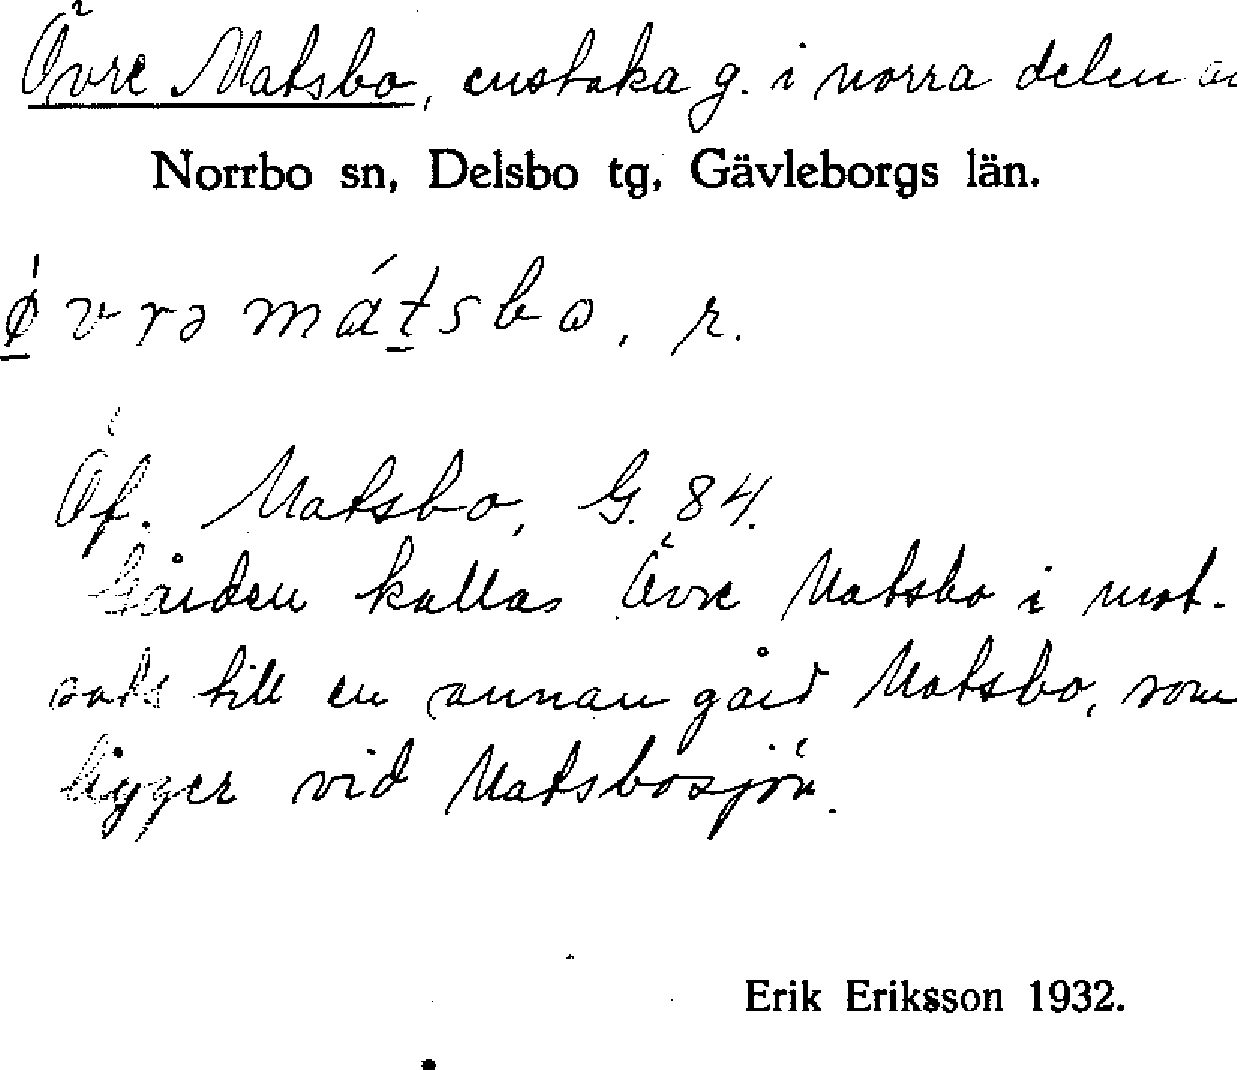 Övre Matsbo, enstaka g. i norra delen av
Norrbo sn, Delsbo tg, Gävleborgs län.
ǿvrəmátsbo, r.
Öf. Matsbo, G. 84.
Gården kallas Övre Matsbo i mot-
sats till en annan gård Matsbo, som
ligger vid Matsbosjön.
Erik Eriksson 1932.